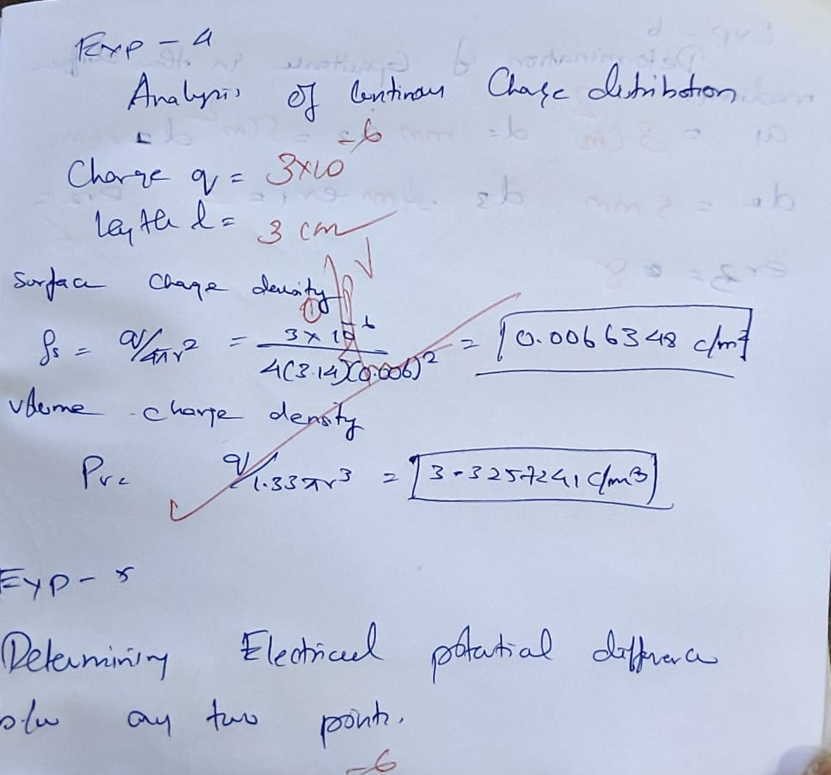 Exp - 4
Analysis of Continous Charge distribution
Charge q = 3×10^-6
length l = 3 cm
Surface charge density
ρs = q/4πr² = 3×10^-6 / 4(3.14)(0.006)² = 0.0066348 c/m²
Volume charge density
Pv = q/1.33πr³ = 3.3257241 c/m³
Exp - 5
Determining Electrical potential difference
b/w any two points.
-6